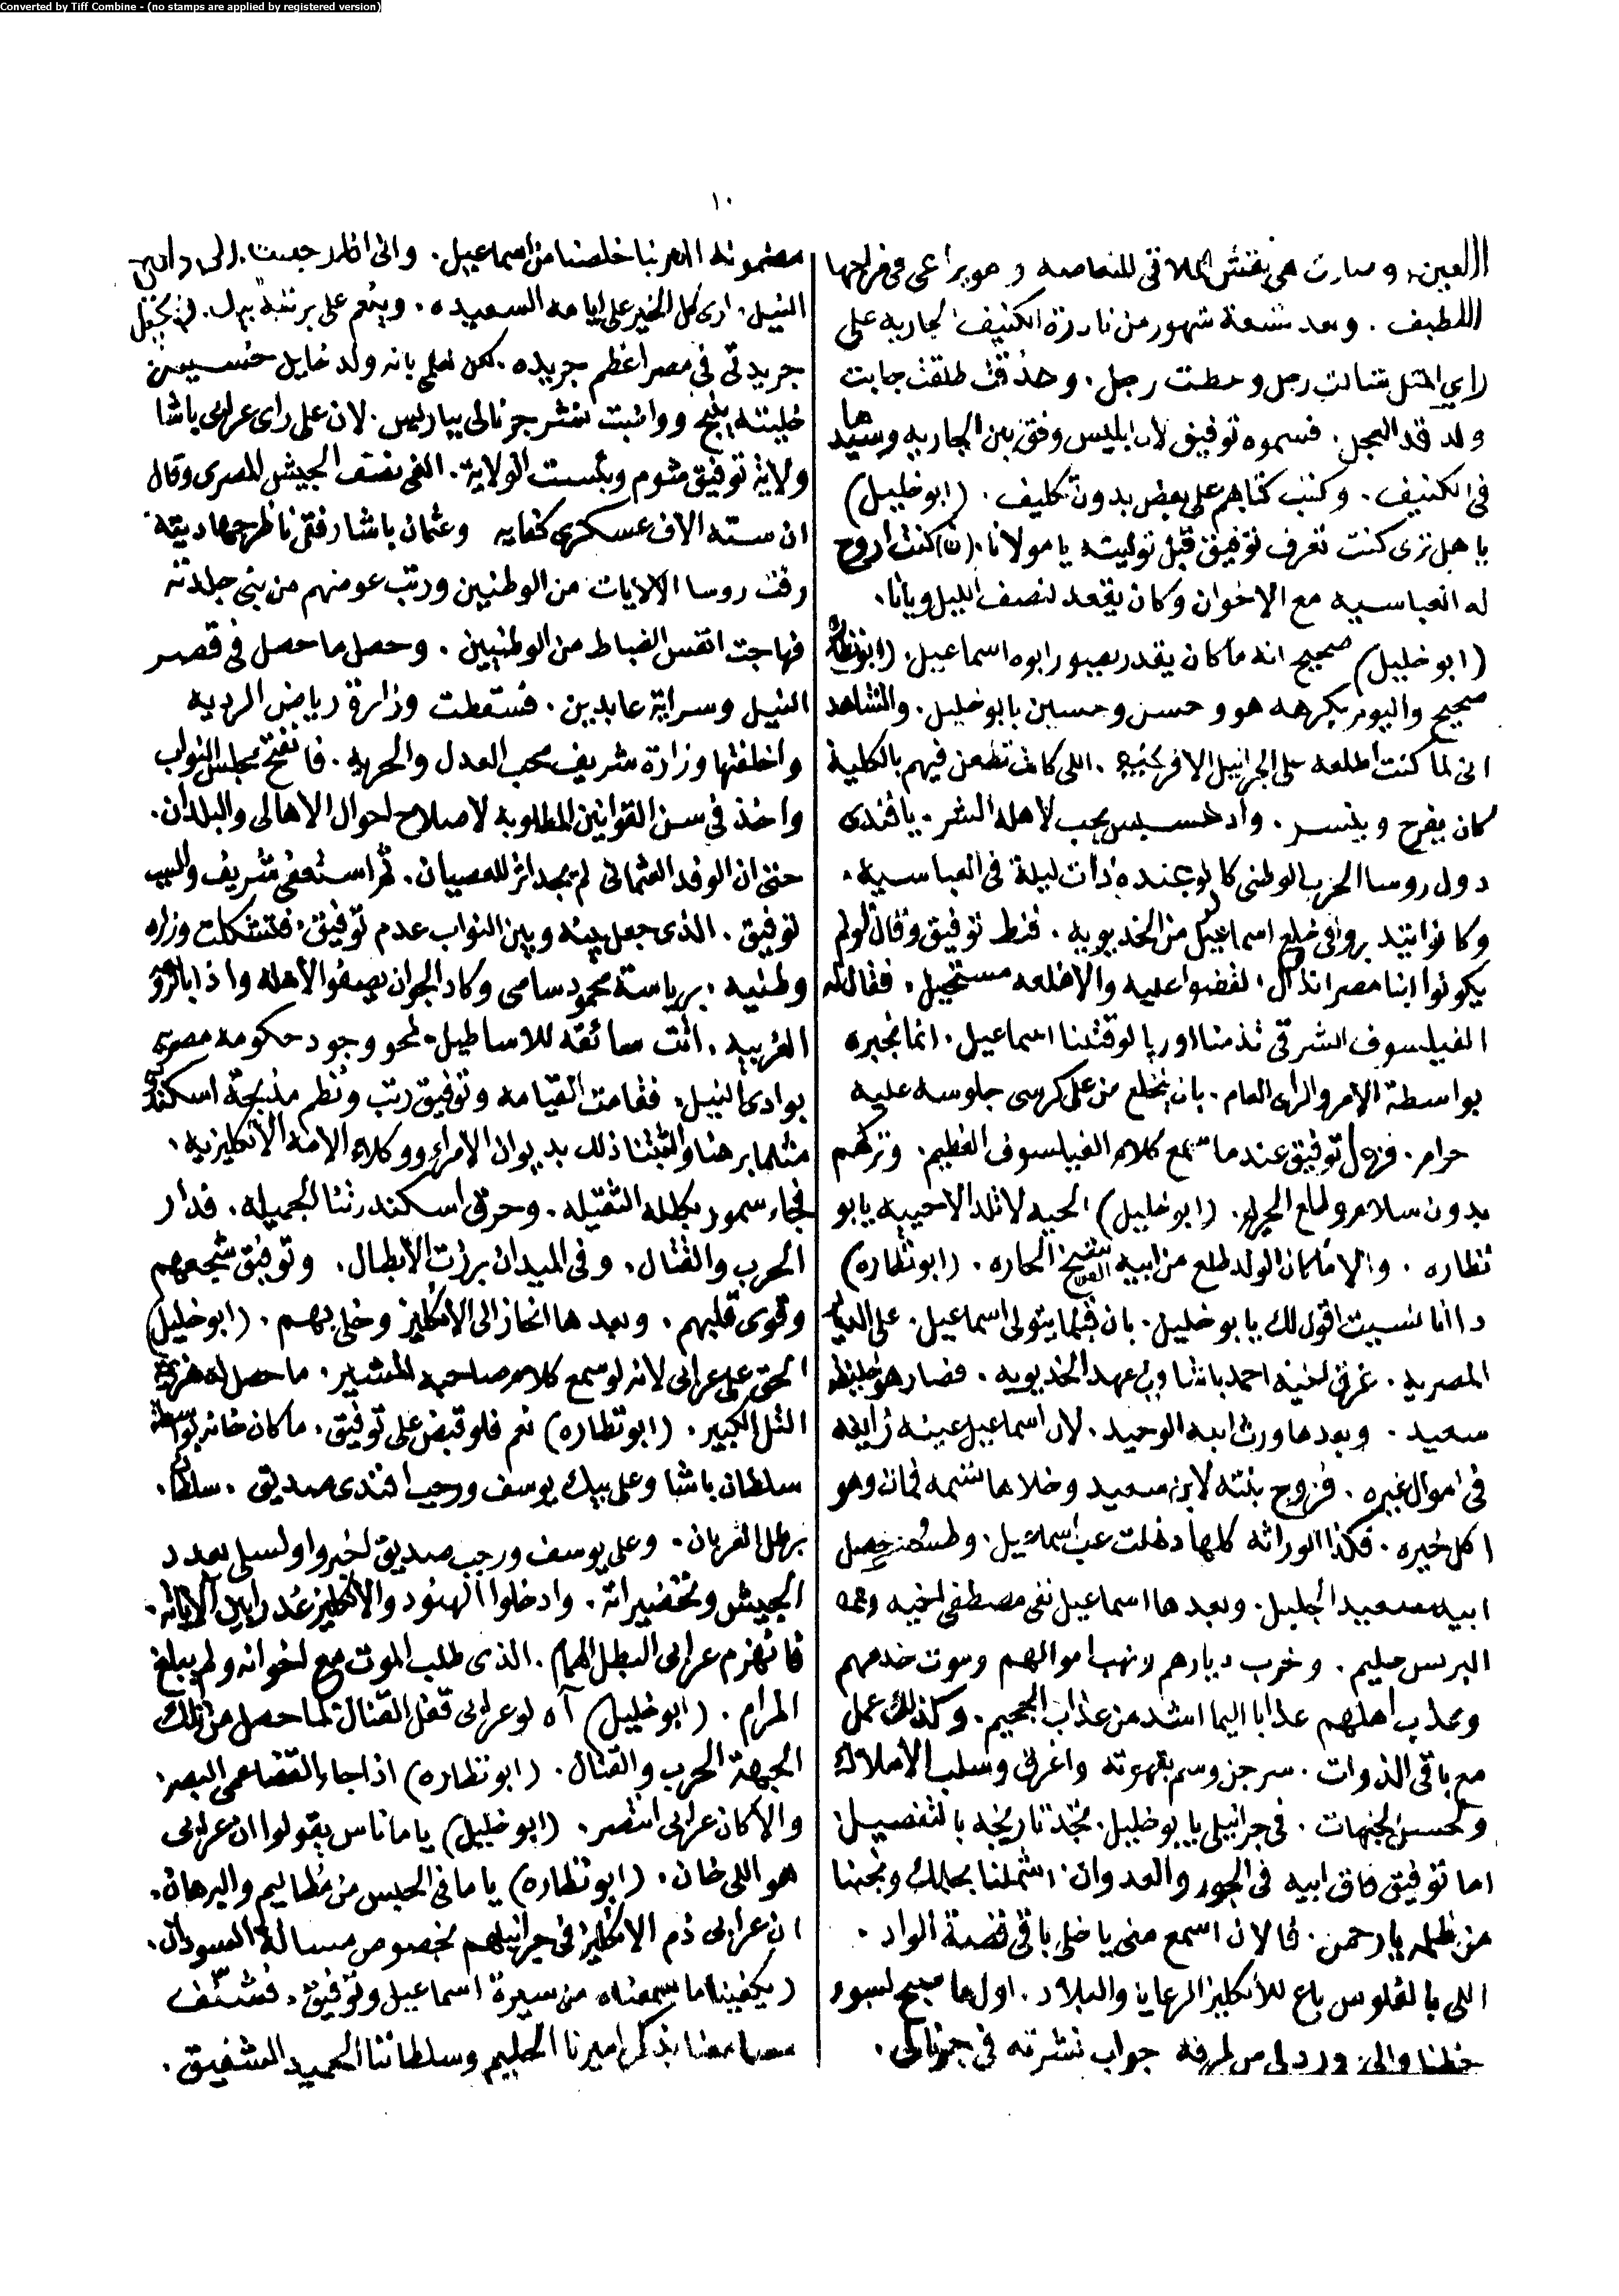 Converted by Tiff Combine - (no stamps are applied by registered version)
١٠
العين، وصارت هي تفتش لملاقي للنعاصه وهو يراعي في فراجها
اللطيف. وبعد تسعة شهور من نادرة الكنيف الجاريه على
راي المثل شالت رجل وحطت رجل. وحذقت طلقت جابت
ولد قد العجل. فسموه توفيق لان ابليس وفق بين الجاريه وسيدها
في الكنيف. وكتب كتابهم على بعض بدون تكليف. (ابو خليل)
يا هل ترى كنت تعرف توفيق قبل توليته يا مولانا. (ن) كنت اروح
له العباسيه مع الاخوان وكان يقعد لنصف الليل ويانا.
(ابو خليل) صحيح انه ما كان يقدر يصبور ابوه اسماعيل. (ابو نظاره)
صحيح واليوم يكرهه هو وحسن وحسين يابو خليل. والشاهد
انى لما كنت اطلعه على الجرانيل الافرنجيه. اللى كانت تطعن فيهم بالكلية
كان يفرح وينسر. واد خسيس يحب لاهله الشر. يافندى
دول روسا الحزب الوطنى كانوا عنده ذات ليلة في العباسيه.
وكانوا بيتدبروا في خلع اسماعيل من الخديويه. فنط توفيق وقال لو لم
يكونوا ابنا مصر انذال. لقضوا عليه والا خلعه مستحيل. فقال له
الفيلسوف الشرقي تذمنا اوربا لو قتلنا اسماعيل. انما نجبره
بواسطة الامر والراى العام. بان ينخلع من على كرسى جلوسه عليه
حرام. فزعل توفيق عندما سمع كلام الفيلسوف العظيم. وتركهم
بدون سلام وطلع الحريم. (ابو خليل) الحيه لا تلد الا حييه يابو
نظاره. والا كان الولد طلع من ابيه شيخ الحاره. (ابو نظاره)
دا انا نسيت اقول لك يابو خليل. بان قبلما يتولى اسماعيل. على الديار
المصريه. غرق لخيه احمد باشا ولى عهد الخديويه. فصار هو خليفة
سعيد. وبعدها ورث ابنه الوحيد. لان اسماعيل عينه زايغه
في اموال غيره. فزوج بنته لابن سعيد وخلاها تسمه فمات وهو
اكل خيره. فكذا الوراثه كلها دخلت عب اسماعيل. وطسن حصل
ابيه سعيد الجليل. وبعدها اسماعيل نفى مصطفى لخيه وعمه
البرنس حليم. وخرب ديارهم ونهب اموالهم وموت خدمهم
وعذب اهلهم عذابا اليما اشد من عذاب الجحيم. وكذلك عمل
مع باقي الذوات. سرجن وسم بقهوته واغرق وسلب الاملاك
والجنيهات. في جرانيلى يابو خليل. تجد تاريخه بالتفصيل
اما توفيق فاق ابيه في الجور والعدوان. اشملنا بحلمك ونجنا
من ظلمه يا رحمن. فالان اسمع منى يا خلى باقي قصة الواد.
اللى بالفلوس باع للانكليز الرعايا والبلاد. اولها صبح لسبور
خطنا والى ورد لى من طرفه جواب نشرته في جرنالى.
مضمونه الهم ربنا خلصنا من اسماعيل. وانى اذا رجعت الى وادى
النيل. ارى كل الخير على ايامه السعيده. وينعم على برتبة بيك. فتكون
جريدتى في مصر اعظم جريده. لكن لعلمى بانه ولد خاين خسيس
خليته ينبح وواظبت نشر جرنالى بباريس. لان على راى عرابى باشا
ولاية توفيق مشوم وبئست الولاية. الغى نصف الجيش المصرى وقال
ان سته الاف عسكرى كفايه وعثمان باشا رفقى ناظر جهاديته
رفت روسا الالايات من الوطنيين ورتب عوضهم من بنى جلدته
فهاجت انفس الضباط من الوطنيين. وحصل ما حصل في قصر
النيل وسراية عابدين. فسقطت وزارة رياض الرديه
واخلفتها وزارة شريف محب العدل والحريه. فانفتح مجلس النواب
واخذ في سن القوانين المطلوبه لاصلاح احوال الاهالى والبلدان.
حتى ان الوفد العثمانى لم يجد اثر للعصيان. ثم استعفى شريف والسبب
توفيق. الذى جعل بينه وبين النواب عدم توفيق. فتشكلت وزاره
وطنيه. برياسة محمود سامى وكاد الجو ان يصفو لاهله واذا بالدول
الغربيه. اتت سائقه للاساطيل. لمحو وجود حكومه مصريه
بوادى النيل. فقامت القيامه وتوفيق رتب ونظم مذبحة اسكندريه
مثلما برهنا واثبتنا ذلك بديوان الامراء ووكلاء الامة الانكليزيه.
فجاء سمور بكلله الثقيله. وحرق اسكندرتنا الجميله. فدار
الحرب والقتال. وفى الميدان برزت الابطال. وتوفيق شجعهم
وقوى قلبهم. وبعدها انحاز الى الانكليز وخلى بهم. (ابو خليل)
الحق على عرابى لانه لو سمع كلام صاحبه المشير. ما حصل له هزيمة
التل الكبير. (ابو نظاره) نعم فلو قبض على توفيق. ما كان خانه بواسطة
سلطان باشا وعلى بيك يوسف ورجب افندى صديق. سلطان
برطل العربان. وعلى يوسف ورجب صديق اخبروا ولسلى بعدد
الجيش وتحضيراته. وادخلوا الهنود والانكليز غدرا بين الاياته.
فانهزم عرابى البطل الهمام. الذى طلب الموت مع اخوانه ولم يبلغ
المرام. (ابو خليل) آه لو عرابى قفل القنال لما حصل من تلك
الجهة الحرب والقتال. (ابو نظاره) اذا جاء القضا عمى البصر
والا كان عرابى انتصر. (ابو خليل) ياما ناس بيقولوا ان عرابى
هو اللى خان. (ابو نظاره) ياما في الحبس من مظاليم والبرهان.
ان عرابى ذم الانكليز في جرانيلهم بخصوص مسالة السودان.
ويكفينا ما سمعناه من سيرة اسماعيل وتوفيق. فشنف
مسامعنا بذكر اميرنا الحليم وسلطاننا الحميد الشفيق.